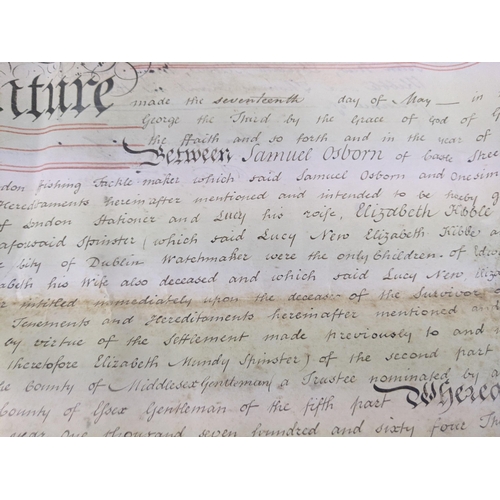 nture made the seventeenth day of May in
George the Third by the Grace of God of
the Faith and so forth and in the year of
Between Samuel Osborn of Castle Stree
ndon Fishing Tackle maker which said Samuel Osborn and Onesim
Hereditaments hereinafter mentioned and intended to be hereby g
of London Stationer and Lucy his wife, Elizabeth Kibble
aforesaid Spinster (which said Lucy New Elizabeth Kibble a
e City of Dublin Watchmaker were the only Children of Edw
abeth his Wife also deceased and which said Lucy New Eliza
intitled immediately upon the decease of the Survivor of
Tenements and Hereditaments hereinafter mentioned and
by virtue of the Settlement made previously to and
therefore Elizabeth Mundy Spinster) of the second part
e County of Middlesex Gentleman (a Trustee nominated by a
County of Essex Gentleman of the fifth part Where
year One thousand seven hundred and sixty four Th